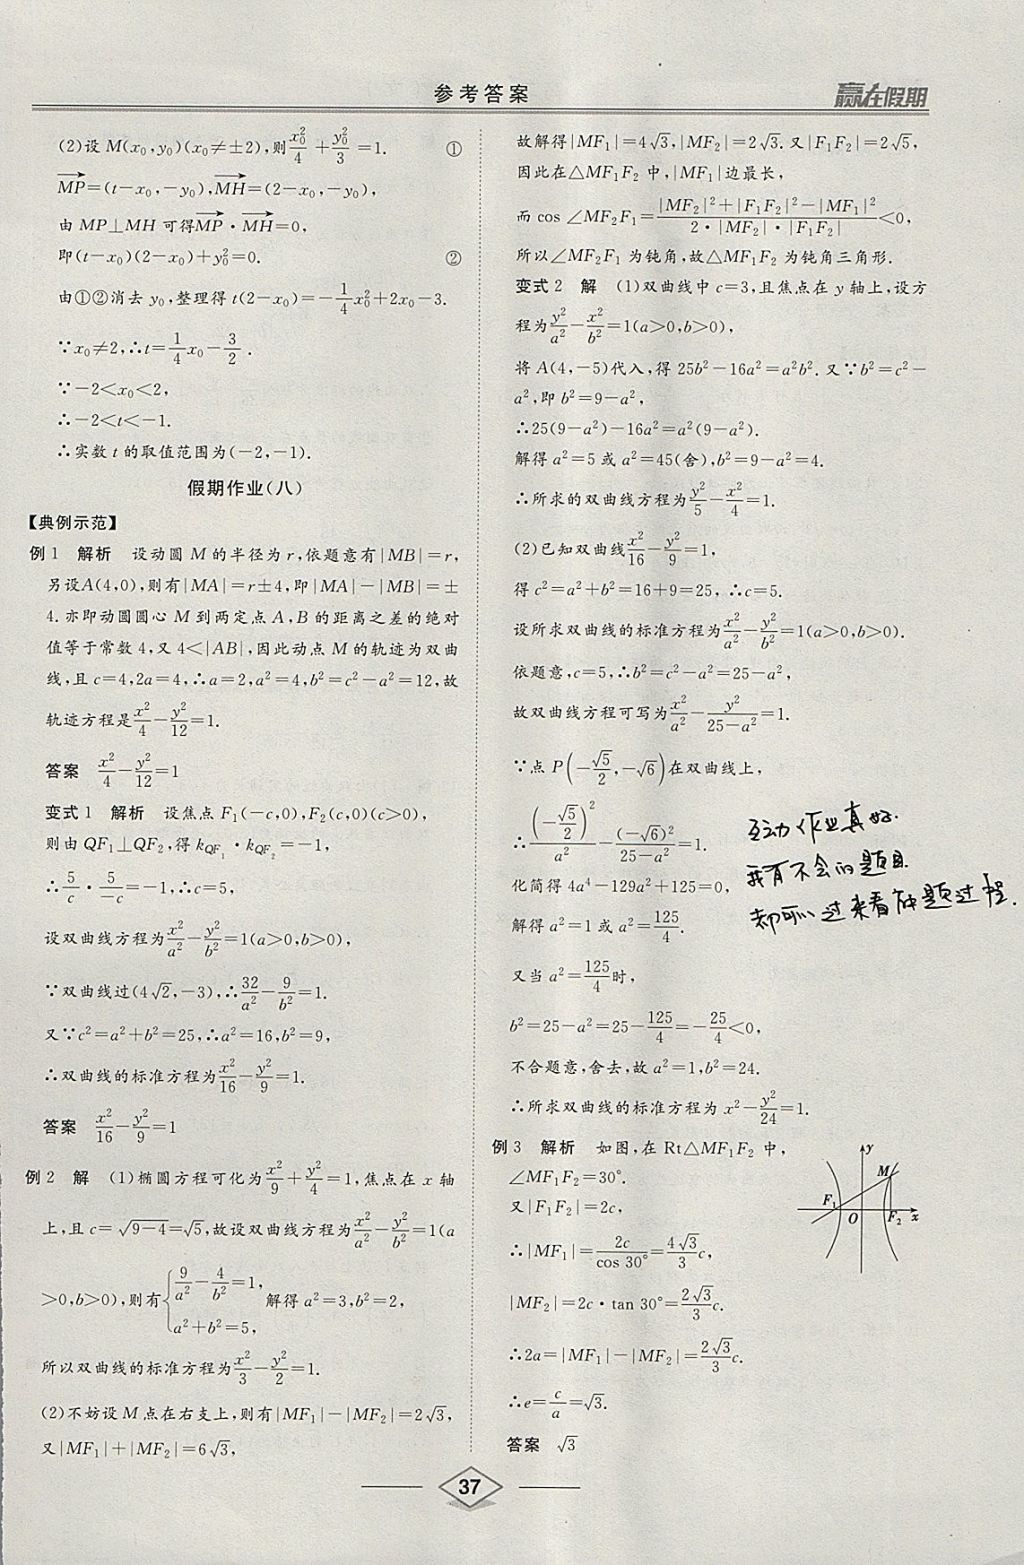 参考答案
赢在假期
(2)设 M(x₀,y₀)(x₀≠±2),则x₀²/4+y₀²/3=1. ①
MP→=(t−x₀,−y₀),MH→=(2−x₀,−y₀),
由 MP⊥MH 可得MP→·MH→=0,
即(t−x₀)(2−x₀)+y₀²=0. ②
由①②消去 y₀,整理得 t(2−x₀)=−1/4x₀²+2x₀−3.
∵x₀≠2,∴t=1/4x₀−3/2.
∵−2<x₀<2,
∴−2<t<−1.
∴实数 t 的取值范围为(−2,−1).
假期作业(八)
【典例示范】
例 1 解析 设动圆 M 的半径为 r,依题意有|MB|=r,
另设A(4,0),则有|MA|=r±4,即|MA|−|MB|=±
4.亦即动圆圆心 M 到两定点 A,B 的距离之差的绝对
值等于常数 4,又 4<|AB|,因此动点 M 的轨迹为双曲
线,且 c=4,2a=4,∴a=2,a²=4,b²=c²−a²=12,故
轨迹方程是x²/4−y²/12=1.
答案 x²/4−y²/12=1
变式 1 解析 设焦点 F₁(−c,0),F₂(c,0)(c>0),
则由 QF₁⊥QF₂,得 k_QF₁·k_QF₂=−1,
∴5/c·5/−c=−1,∴c=5,
设双曲线方程为x²/a²−y²/b²=1(a>0,b>0),
∵双曲线过(4√2,−3),∴32/a²−9/b²=1.
又∵c²=a²+b²=25,∴a²=16,b²=9,
∴双曲线的标准方程为x²/16−y²/9=1.
答案 x²/16−y²/9=1
例 2 解 (1)椭圆方程可化为x²/9+y²/4=1,焦点在 x 轴
上,且 c=√(9−4)=√5,故设双曲线方程为x²/a²−y²/b²=1(a
>0,b>0),则有{9/a²−4/b²=1, a²+b²=5, 解得 a²=3,b²=2,
所以双曲线的标准方程为x²/3−y²/2=1.
(2)不妨设 M 点在右支上,则有|MF₁|−|MF₂|=2√3,
又|MF₁|+|MF₂|=6√3,
故解得|MF₁|=4√3,|MF₂|=2√3.又|F₁F₂|=2√5,
因此在△MF₁F₂ 中,|MF₁|边最长,
而 cos ∠MF₂F₁=(|MF₂|²+|F₁F₂|²−|MF₁|²)/(2·|MF₂|·|F₁F₂|)<0,
所以∠MF₂F₁ 为钝角,故△MF₁F₂ 为钝角三角形.
变式 2 解 (1)双曲线中 c=3,且焦点在 y 轴上,设方
程为y²/a²−x²/b²=1(a>0,b>0),
将 A(4,−5)代入,得 25b²−16a²=a²b².又∵b²=c²−
a²,即 b²=9−a²,
∴25(9−a²)−16a²=a²(9−a²).
解得 a²=5 或 a²=45(舍),b²=9−a²=4.
∴所求的双曲线方程为y²/5−x²/4=1.
(2)已知双曲线x²/16−y²/9=1,
得 c²=a²+b²=16+9=25,∴c=5.
设所求双曲线的标准方程为x²/a²−y²/b²=1(a>0,b>0).
依题意,c=5,∴b²=c²−a²=25−a²,
故双曲线方程可写为x²/a²−y²/(25−a²)=1.
∵点 P(−√5/2,−√6)在双曲线上,
∴(−√5/2)²/a²−(−√6)²/(25−a²)=1.
化简得 4a⁴−129a²+125=0,
解得 a²=1 或 a²=125/4.
又当 a²=125/4时,
b²=25−a²=25−125/4=−25/4<0,
不合题意,舍去,故 a²=1,b²=24.
∴所求双曲线的标准方程为 x²−y²/24=1.
互动作业真好.
我有不会的题目
都可以过来看解题过程.
例 3 解析 如图,在 Rt△MF₁F₂ 中,
∠MF₁F₂=30°.
又|F₁F₂|=2c,
∴|MF₁|=2c/cos 30°=4√3/3c,
|MF₂|=2c·tan 30°=2√3/3c.
∴2a=|MF₁|−|MF₂|=2√3/3c.
∴e=c/a=√3.
答案 √3
y
M
F₁
O
F₂
x
37